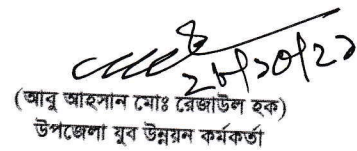 ২৮/১০/২১
(আবু আহসান মোঃ রেজাউল হক)
উপজেলা যুব উন্নয়ন কর্মকর্তা